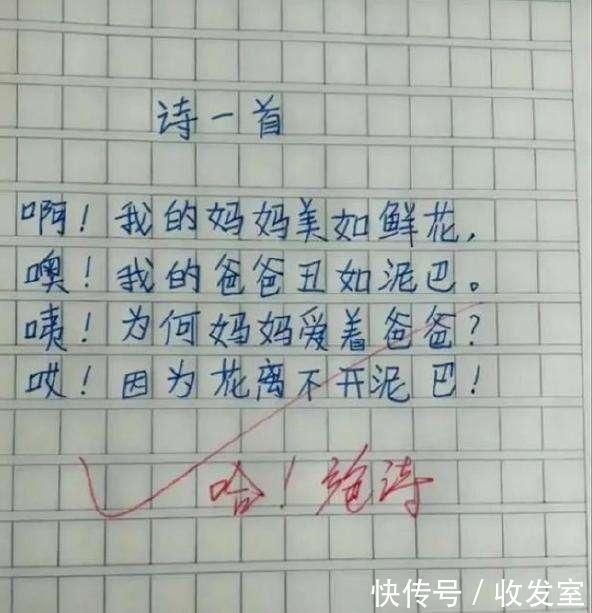 诗一首
啊！我的妈妈美如鲜花，
噢！我的爸爸丑如泥巴。
咦！为何妈妈爱着爸爸？
哎！因为花离不开泥巴！
哈！绝诗
快传号／收发室